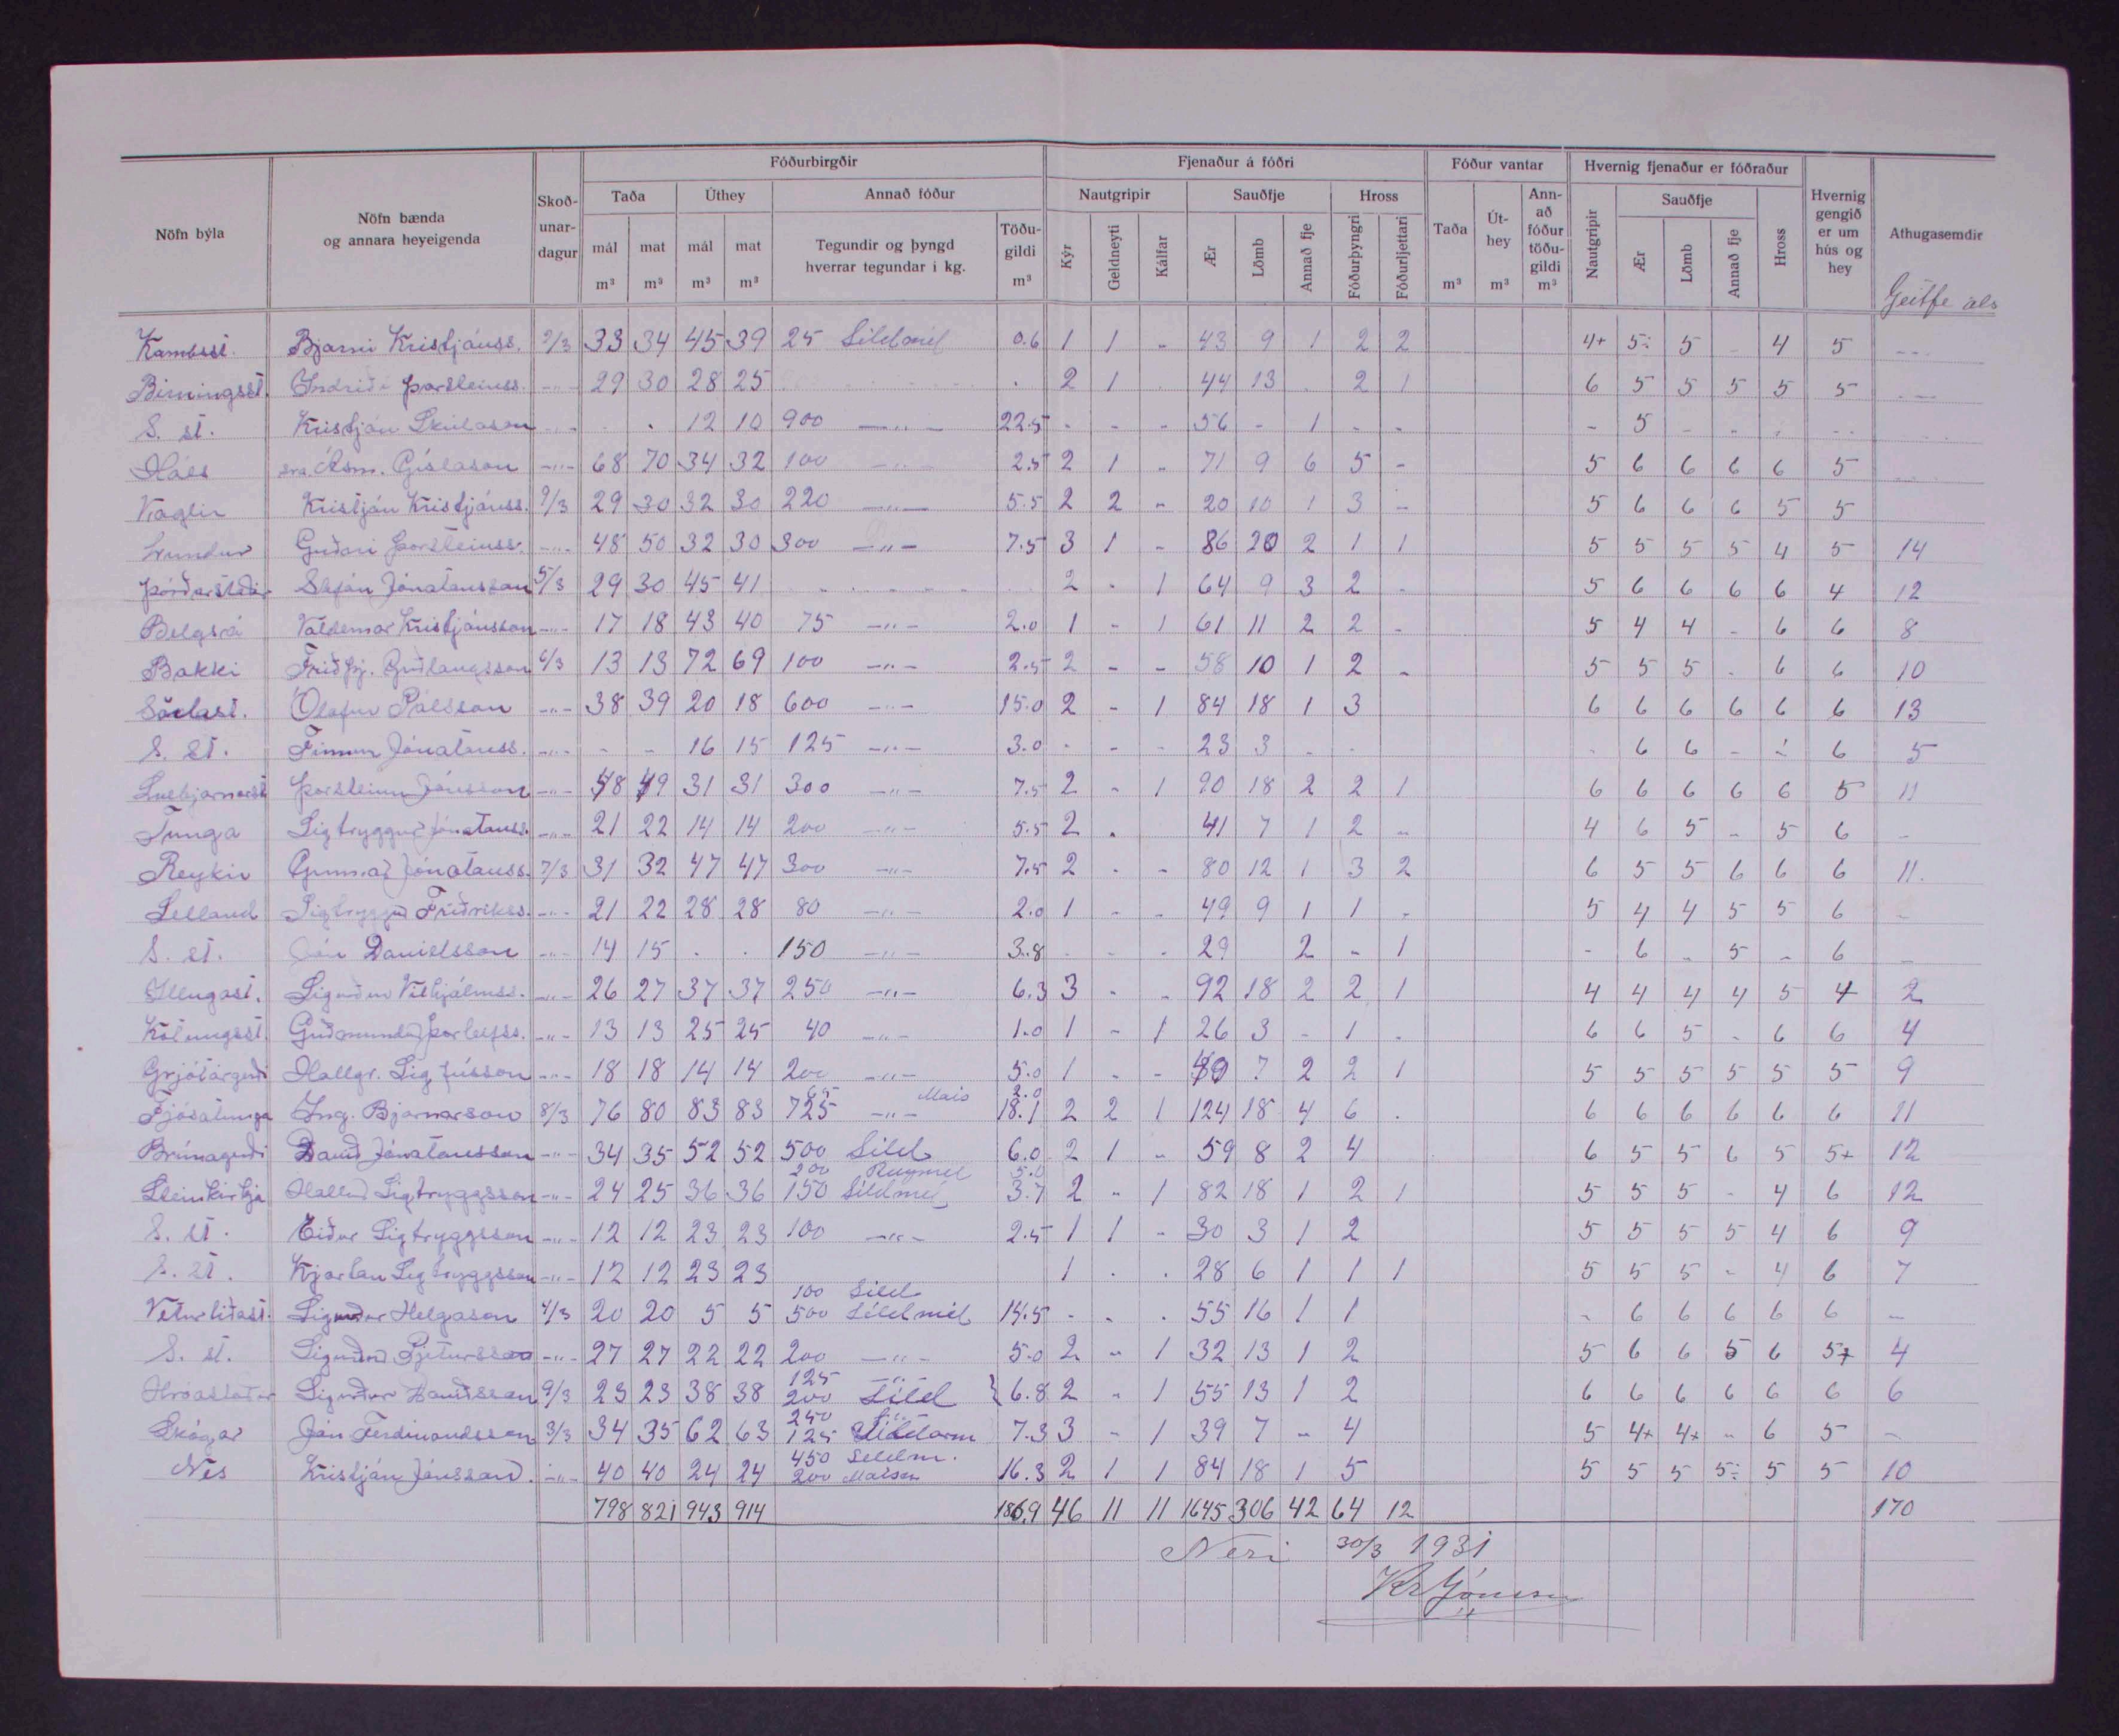 Fóðurbirgðir Fjenaður á fóðri Fóður vantar Hvernig fjenaður er fóðraður
Nöfn býla Nöfn bænda og annara heyeigenda Skoð-unar-dagur Taða Úthey Annað fóður Nautgripir Sauðfje Hross Taða Út-hey Ann-að fóður töðu-gildi Nautgripir Sauðfje Hross Hvernig gengið er um hús og hey Athugasemdir
mál m³ mat m³ mál m³ mat m³ Tegundir og þyngd hverrar tegundar í kg. Töðu-gildi m³ Kýr Geldneyti Kálfar Ær Lömb Annað fje Fóðurþyngri Fóðurljettari m³ m³ m³ Ær Lömb Annað fje
Geitfe als
Kambsst. Bjarni Kristjánss. 9/3 33 34 45 39 25 Síldmél 0.6 1 1 - 43 9 1 2 2 4+ 5÷ 5 - 4 5
Birningsst. Indriði Þorsteinss. -"- 29 30 28 25 2 1 44 13 . 2 1 6 5 5 5 5 5
S. st. Kristján Skúlason -"- . . 12 10 900 -"- 22.5 - - - 56 - 1 - - - 5 - - - -
Háls sra Ásm. Gíslason -"- 68 70 34 32 100 -"- 2.5 2 1 - 71 9 6 5 - 5 6 6 6 6 5
Vaglir Kristján Kristjánss. 9/3 29 30 32 30 220 -"- 5.5 2 2 - 20 10 1 3 - 5 6 6 6 5 5
Lundur Guðni Þorsteinss. -"- 48 50 32 30 300 -"- 7.5 3 1 - 86 20 2 1 1 5 5 5 5 4 5 14
Þórðarstaðir Stefán Jónatansson 5/3 29 30 45 41 2 . 1 64 9 3 2 - 5 6 6 6 6 4 12
Belgsá Valdemar Kristjánsson -"- 17 18 43 40 75 -"- 2.0 1 - 1 61 11 2 2 - 5 4 4 - 6 6 8
Bakki Friðfj. Guðlaugsson 6/3 13 13 72 69 100 -"- 2.5 2 - - 58 10 1 2 - 5 5 5 . 6 6 10
Sörlast. Ólafur Pálsson -"- 38 39 20 18 600 -"- 15.0 2 - 1 84 18 1 3 6 6 6 6 6 6 13
S. st. Finnur Jónatanss. -"- - - 16 15 125 -"- 3.0 - - - 23 3 - - 6 6 - - 6 5
Snæbjarnarst Þorsteinn Jónsson -"- 48 49 31 31 300 -"- 7.5 2 - 1 90 18 2 2 1 6 6 6 6 6 5 11
Tunga Sigtryggur Jónatanss. -"- 21 22 14 14 200 -"- 5.5 2 . 41 7 1 2 - 4 6 5 - 5 6 -
Reykir Gunnar Jónatanss. 7/3 31 32 47 47 300 -"- 7.5 2 . - 80 12 1 3 2 6 5 5 6 6 6 11.
Selland Sigtryggur Friðrikss. -"- 21 22 28 28 80 -"- 2.0 1 - - 49 9 1 1 - 5 4 4 5 5 6 -
S. st. Jón Daníelsson -"- 14 15 . . 150 -"- 3.8 - - - 29 2 - 1 - 6 - 5 - 6 -
Illugast. Sigurður Vilhjálmss. -"- 26 27 37 37 250 -"- 6.3 3 - - 92 18 2 2 1 4 4 4 4 5 4 2
Kotungsst. Guðmundur Þorleifss. -"- 13 13 25 25 40 -"- 1.0 1 - 1 26 3 - 1 - 6 6 5 - 6 6 4
Grjótárgerði Hallgr. Sigfússon -"- 18 18 14 14 200 -"- 5.0 1 - - 7 2 2 1 5 5 5 5 5 5 9
65 Mais 2.0
Fjósatunga Ing. Bjarnarson 8/3 76 80 83 83 725 -"- 18.1 2 2 1 124 18 4 6 . 6 6 6 6 6 6 11
Brúnagerði Davíð Jónatansson -"- 34 35 52 52 500 Síld 6.0 2 1 - 59 8 2 4 6 5 5 6 5 5+ 12
200 Rúgmél 5.0
Steinkirkja Hallur Sigtryggsson -"- 24 25 36 36 150 Síldmél 3.7 2 - 1 82 18 1 2 1 5 5 5 - 4 6 12
S. st. Eiður Sigtryggsson -"- 12 12 23 23 100 -"- 2.5 1 1 - 30 3 1 2 5 5 5 5 4 6 9
S. st. Kjartan Sigtryggsson -"- 12 12 23 23 1 . . 28 6 1 1 1 5 5 5 - 4 6 7
100 Síld
Veturliðast. Sigurður Helgason 4/3 20 20 5 5 500 Síldmél 14.5 - . . 55 16 1 1 - 6 6 6 6 6 -
S. st. Sigurður Pjetursson -"- 27 27 22 22 200 -"- 5.0 2 - 1 32 13 1 2 5 6 6 5 6 5+ 4
125 -"-
Hróastaðir Sigurður Davíðsson 9/3 23 23 38 38 200 Síld } 6.8 2 - 1 55 13 1 2 6 6 6 6 6 6 6
250 -"-
Skógar Jón Ferdinandsson 3/3 34 35 62 63 125 7.3 3 - 1 39 7 - 4 5 4+ 4+ - 6 5 -
450 Síldm.
Nes Kristján Jónsson -"- 40 40 24 24 200 16.3 2 1 1 84 18 1 5 5 5 5 5÷ 5 5 10
798 821 943 914 186.9 46 11 11 1645 306 42 64 12 170
Nesi 30/3 1931
Kr Jónsson